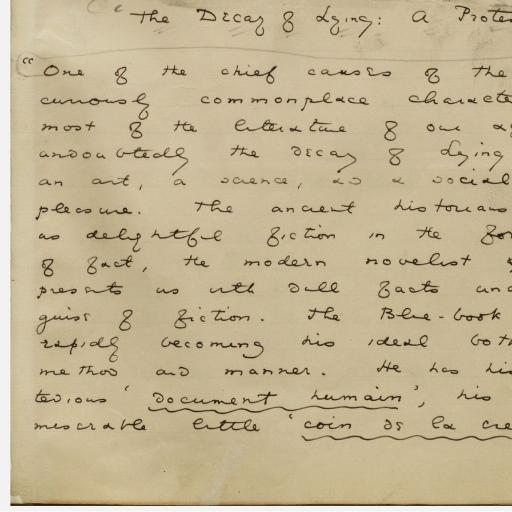 " The Decay of Lying: A Protes
"One of the chief causes of the
curiously commonplace characte
most of the literature of our ag
undoubtedly the decay of Lying
an art, a science, and a social
pleasure. The ancient historians
as delightful fiction in the for
of fact, the modern novelist
presents us with dull facts und
guise of fiction. The Blue-book
rapidly becoming his ideal both
method and manner. He has his
tedious 'document humain', his
miserable little 'coin de la cre